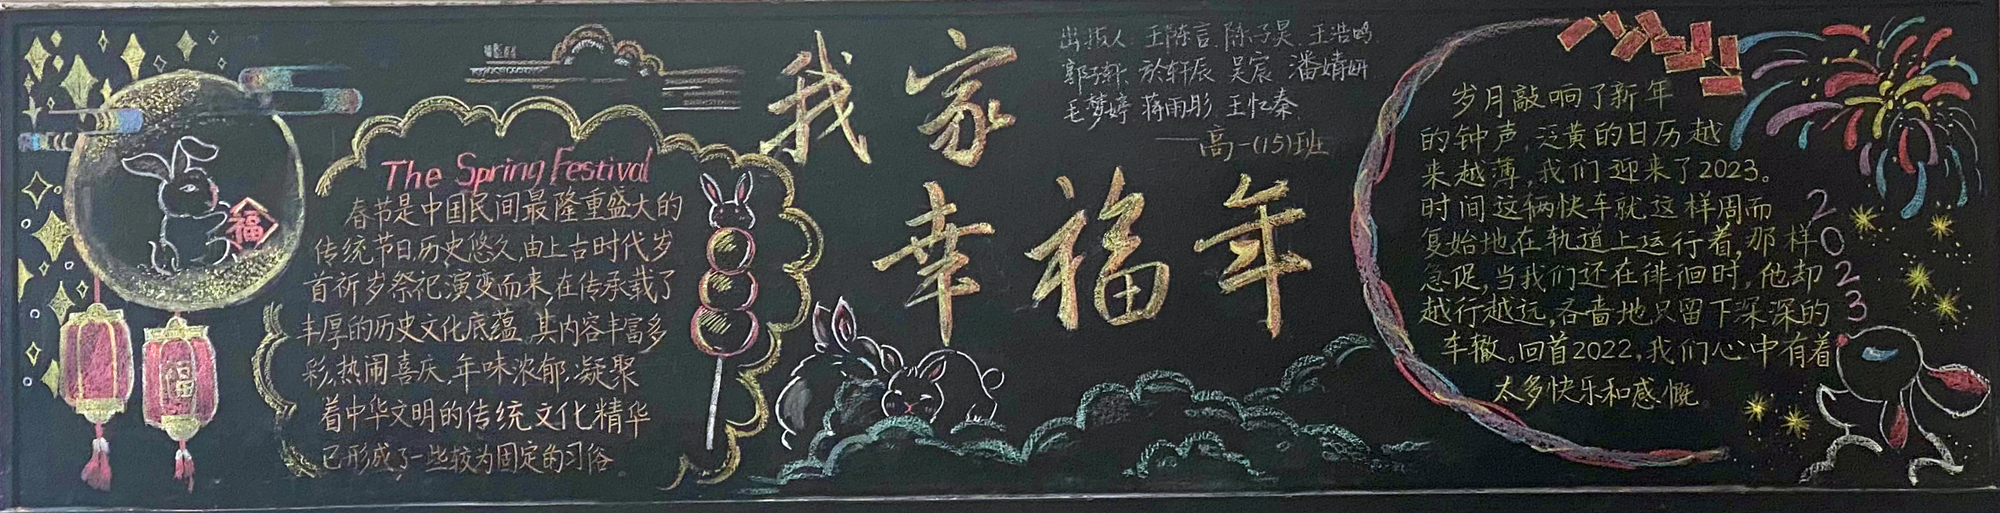 福
福
The Spring Festival
春节是中国民间最隆重盛大的
传统节日,历史悠久,由上古时代岁
首祈岁祭祀演变而来,在传承载了
丰厚的历史文化底蕴,其内容丰富多
彩,热闹喜庆,年味浓郁,凝聚
着中华文明的传统文化精华
已形成了一些较为固定的习俗
我家
幸福年
出板人:王陈言、陈子昊、王浩鸣
郭子轩、於轩辰、吴宸、潘婧妍
毛梦婷 蒋雨彤 王忆秦
——高一(15)班
岁月敲响了新年
的钟声,泛黄的日历越
来越薄,我们迎来了2023。
时间这辆快车就这样周而
复始地在轨道上运行着,那样
急促,当我们还在徘徊时,他却
越行越远,吝啬地只留下深深的
车辙。回首2022,我们心中有着
太多快乐和感慨
2023